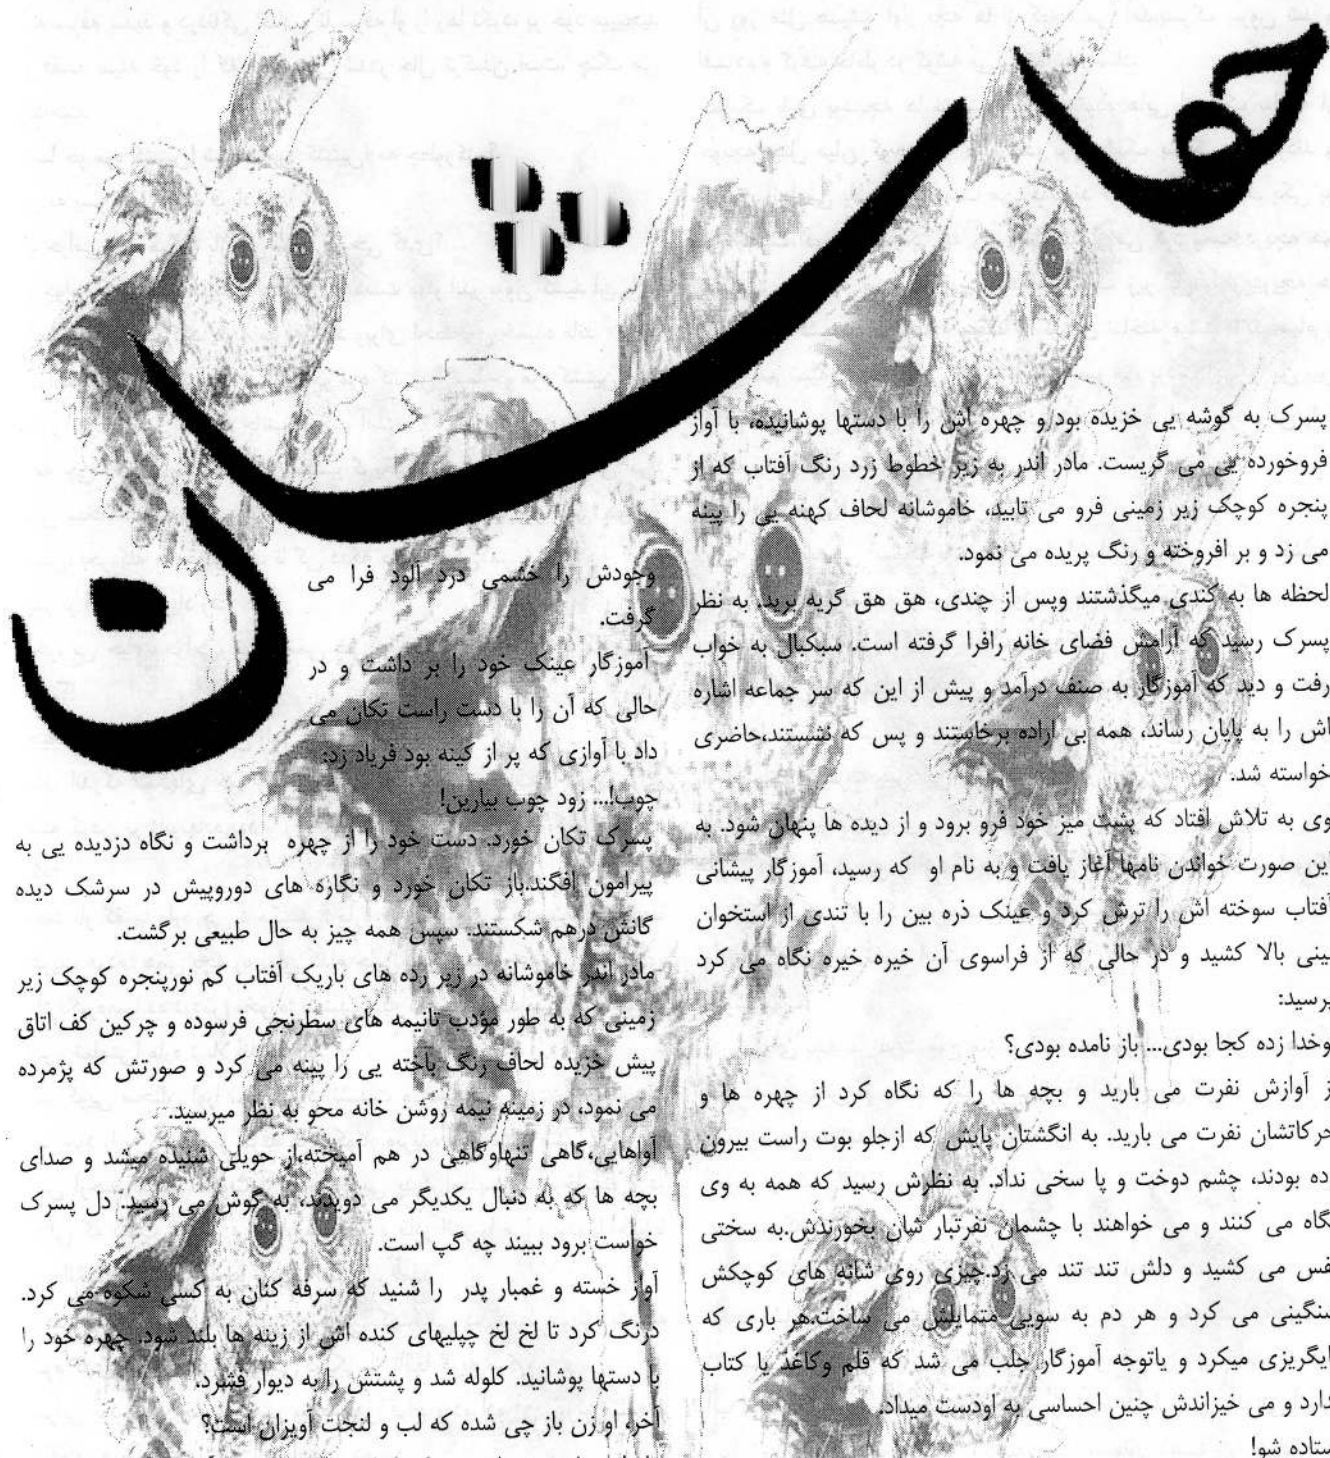 پسرک به گوشه یی خزیده بود و چهره اش را با دستها پوشانیده، با آواز
فروخورده یی می گریست. مادر اندر به زیر خطوط زرد رنگ آفتاب که از
پنجره کوچک زیر زمینی فرو می تابید، خاموشانه لحاف کهنه یی را پینه
می زد و بر افروخته و رنگ پریده می نمود.
لحظه ها به کندی میگذشتند وپس از چندی، هق هق گریه برید. به نظر
پسرک رسید که آرامش فضای خانه رافرا گرفته است. سبکبال به خواب
رفت و دید که آموزگار به صنف درآمد و پیش از این که سر جماعه اشاره
اش را به پایان رساند، همه بی اراده برخاستند و پس که نشستند،حاضری
خواسته شد.
وی به تلاش افتاد که پشت میز خود فرو برود و از دیده ها پنهان شود. به
این صورت خواندن نامها آغاز یافت و به نام او که رسید، آموزگار پیشانی
آفتاب سوخته اش را ترش کرد و عینک ذره بین را با تندی از استخوان
بینی بالا کشید و در حالی که از فراسوی آن خیره خیره نگاه می کرد
پرسید:
وخدا زده کجا بودی... باز نامده بودی؟
ز آوازش نفرت می بارید و بچه ها را که نگاه کرد از چهره ها و
حرکاتشان نفرت می بارید. به انگشتان پایش که ازجلو بوت راست بیرون
زده بودند، چشم دوخت و پا سخی نداد. به نظرش رسید که همه به وی
نگاه می کنند و می خواهند با چشمان نفرتبار شان بخورندش.به سختی
نفس می کشید و دلش تند تند می زد.چیزی روی شانه های کوچکش
سنگینی می کرد و هر دم به سویی متمایلش می ساخت.هر باری که
ایگریزی میکرد و یاتوجه آموزگار جلب می شد که قلم وکاغذ یا کتاب
ندارد و می خیزاندش چنین احساسی به اودست میداد.
ستاده شو!
وجودش را خشمی درد آلود فرا می
گرفت.
آموزگار عینک خود را بر داشت و در
حالی که آن را با دست راست تکان می
داد با آوازی که پر از کینه بود فریاد زد:
چوب!... زود چوب بیارین!
پسرک تکان خورد. دست خود را از چهره برداشت و نگاه دزدیده یی به
پیرامون افگند.باز تکان خورد و نگاره های دوروپیش در سرشک دیده
گانش درهم شکستند. سپس همه چیز به حال طبیعی برگشت.
مادر اندر خاموشانه در زیر رده های باریک آفتاب کم نورپنجره کوچک زیر
زمینی که به طور مؤدب تانیمه های سطرنجی فرسوده و چرکین کف اتاق
پیش خزیده لحاف رنگ باخته یی را پینه می کرد و صورتش که پژمرده
می نمود، در زمینه نیمه روشن خانه محو به نظر میرسید.
آواهایی،گاهی تنهاوگاهی در هم آمیخته،از حویلی شنیده میشد و صدای
بچه ها که به دنبال یکدیگر می دویدند، به گوش می رسید. دل پسرک
خواست برود ببیند چه گپ است.
آواز خسته و غمبار پدر را شنید که سرفه کنان به کسی شکوه می کرد.
درنگ کرد تا لخ لخ چپلیهای کنده اش از زینه ها بلند شود. چهره خود را
با دستها پوشانید. کلوله شد و پشتش را به دیوار فشرد.
آخر، او زن باز چی شده که لب و لنجت آویزان است؟